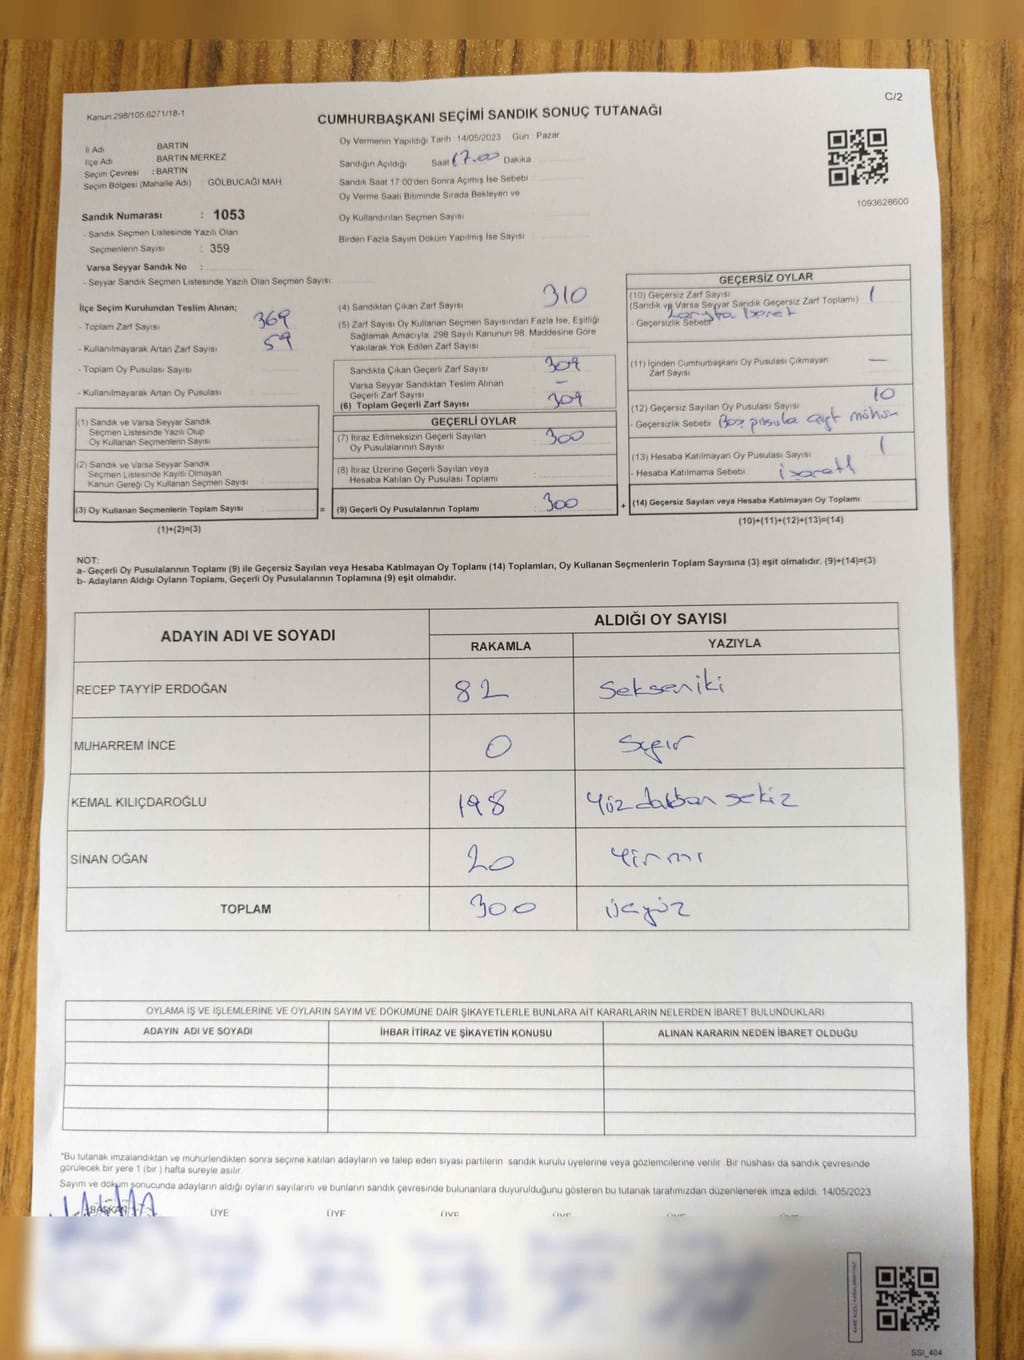 C/2
Kanun:298/105,6271/18-1
CUMHURBAŞKANI SEÇİMİ SANDIK SONUÇ TUTANAĞI
İl Adı BARTIN
İlçe Adı BARTIN MERKEZ
Seçim Çevresi : BARTIN
Seçim Bölgesi (Mahalle Adı) GÖLBUCAĞI MAH.
Oy Vermenin Yapıldığı Tarih 14/05/2023 Gün : Pazar
Sandığın Açıldığı Saat 17.00 Dakika
Sandık Saat 17:00'den Sonra Açımış İse Sebebi
Oy Verme Saati Bitiminde Sırada Bekleyen ve
Oy Kullandırılan Seçmen Sayısı
Birden Fazla Sayım Döküm Yapılmış İse Sayısı
1093628600
Sandık Numarası : 1053
- Sandık Seçmen Listesinde Yazılı Olan
Seçmenlerin Sayısı : 359
Varsa Seyyar Sandık No :
- Seyyar Sandık Seçmen Listesinde Yazılı Olan Seçmen Sayısı:
İlçe Seçim Kurulundan Teslim Alınan;
- Toplam Zarf Sayısı 369
- Kullanılmayarak Artan Zarf Sayısı 59
- Toplam Oy Pusulası Sayısı
- Kullanılmayarak Artan Oy Pusulası
(1) Sandık ve Varsa Seyyar Sandık
Seçmen Listesinde Yazılı Olup
Oy Kullanan Seçmenlerin Sayısı
(2) Sandık ve Varsa Seyyar Sandık
Seçmen Listesinde Kayıtlı Olmayan
Kanun Gereği Oy Kullanan Seçmen Sayısı
(3) Oy Kullanan Seçmenlerin Toplam Sayısı
(1)+(2)=(3)
=
(4) Sandıktan Çıkan Zarf Sayısı 310
(5) Zarf Sayısı Oy Kullanan Seçmen Sayısından Fazla İse, Eşitliği
Sağlamak Amacıyla, 298 Sayılı Kanunun 98. Maddesine Göre
Yakılarak Yok Edilen Zarf Sayısı
Sandıkta Çıkan Geçerli Zarf Sayısı 309
Varsa Seyyar Sandıktan Teslim Alınan
Geçerli Zarf Sayısı —
(6) Toplam Geçerli Zarf Sayısı 309
GEÇERLİ OYLAR
(7) İtiraz Edilmeksizin Geçerli Sayılan
Oy Pusulalarının Sayısı 300
(8) İtiraz Üzerine Geçerli Sayılan veya
Hesaba Katılan Oy Pusulası Toplamı
(9) Geçerli Oy Pusulalarının Toplamı 300
+
GEÇERSİZ OYLAR
(10) Geçersiz Zarf Sayısı 1
(Sandık ve Varsa Seyyar Sandık Geçersiz Zarf Toplamı)
- Geçersizlik Sebebi işaret
(11) İçinden Cumhurbaşkanı Oy Pusulası Çıkmayan
Zarf Sayısı —
(12) Geçersiz Sayılan Oy Pusulası Sayısı 10
- Geçersizlik Sebebi Boş pusula çift mühür
(13) Hesaba Katılmayan Oy Pusulası Sayısı 1
- Hesaba Katılmama Sebebi işaretli
(14) Geçersiz Sayılan veya Hesaba Katılmayan Oy Toplamı
(10)+(11)+(12)+(13)=(14)
NOT:
a- Geçerli Oy Pusulalarının Toplamı (9) ile Geçersiz Sayılan veya Hesaba Katılmayan Oy Toplamı (14) Toplamları, Oy Kullanan Seçmenlerin Toplam Sayısına (3) eşit olmalıdır. (9)+(14)=(3)
b- Adayların Aldığı Oyların Toplamı, Geçerli Oy Pusulalarının Toplamına (9) eşit olmalıdır.
ADAYIN ADI VE SOYADI ALDIĞI OY SAYISI
RAKAMLA YAZIYLA
RECEP TAYYİP ERDOĞAN 82 Sekseniki
MUHARREM İNCE 0 Sıfır
KEMAL KILIÇDAROĞLU 198 Yüzdoksan sekiz
SİNAN OĞAN 20 Yirmi
TOPLAM 300 Üçyüz
OYLAMA İŞ VE İŞLEMLERİNE VE OYLARIN SAYIM VE DÖKÜMÜNE DAİR ŞİKAYETLERLE BUNLARA AİT KARARLARIN NELERDEN İBARET BULUNDUKLARI
ADAYIN ADI VE SOYADI İHBAR İTİRAZ VE ŞİKAYETİN KONUSU ALINAN KARARIN NEDEN İBARET OLDUĞU
*Bu tutanak imzalandıktan ve mühürlendikten sonra seçime katılan adayların ve talep eden siyasi partilerin sandık kurulu üyelerine veya gözlemcilerine verilir. Bir nushası da sandık çevresinde
görülecek bir yere 1 (bir ) hafta süreyle asılır.
Sayım ve döküm sonucunda adayların aldığı oyların sayılarını ve bunların sandık çevresinde bulunanlara duyurulduğunu gösteren bu tutanak tarafımızdan düzenlenerek imza edildi. 14/05/2023
BAŞKAN ÜYE ÜYE ÜYE ÜYE ÜYE ÜYE
SSI_404